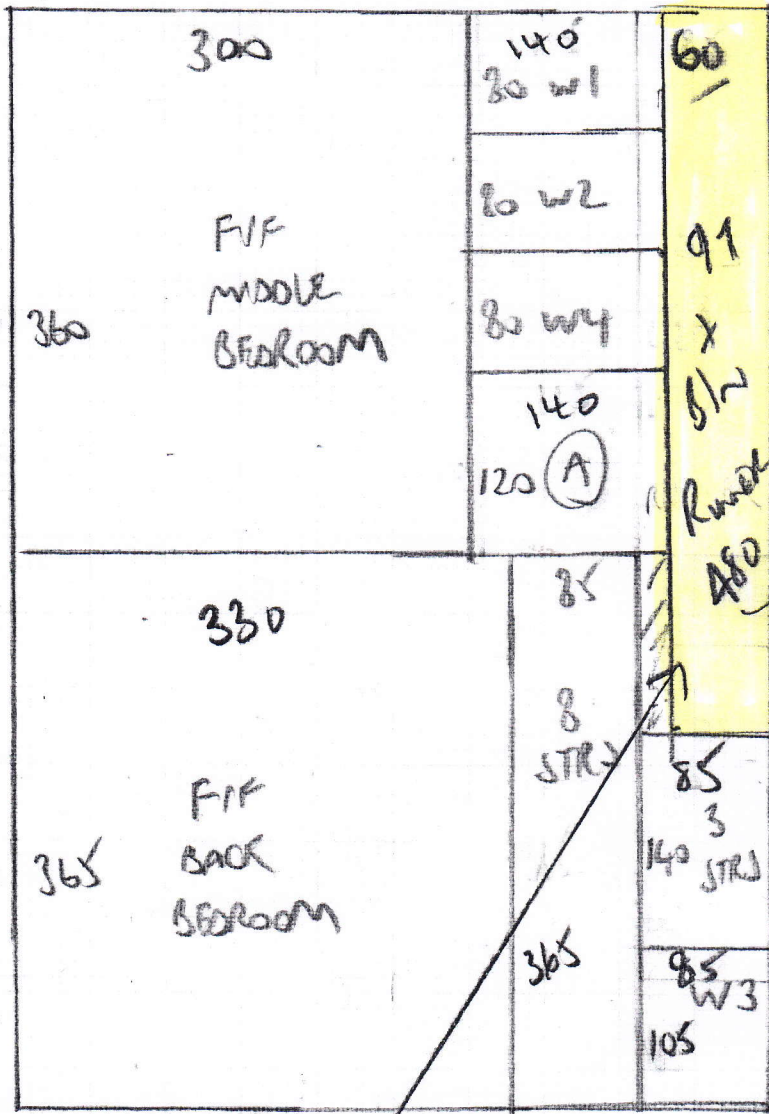 300
360
F/F
MIDDLE
BEDROOM
140
80 W1
80 W2
80 W4
140
120 A
60
91
X
B/W
480
330
365
F/F
BACK
BEDROOM
85
8
STRS
365
85
3
140 STRS
85
W3
105